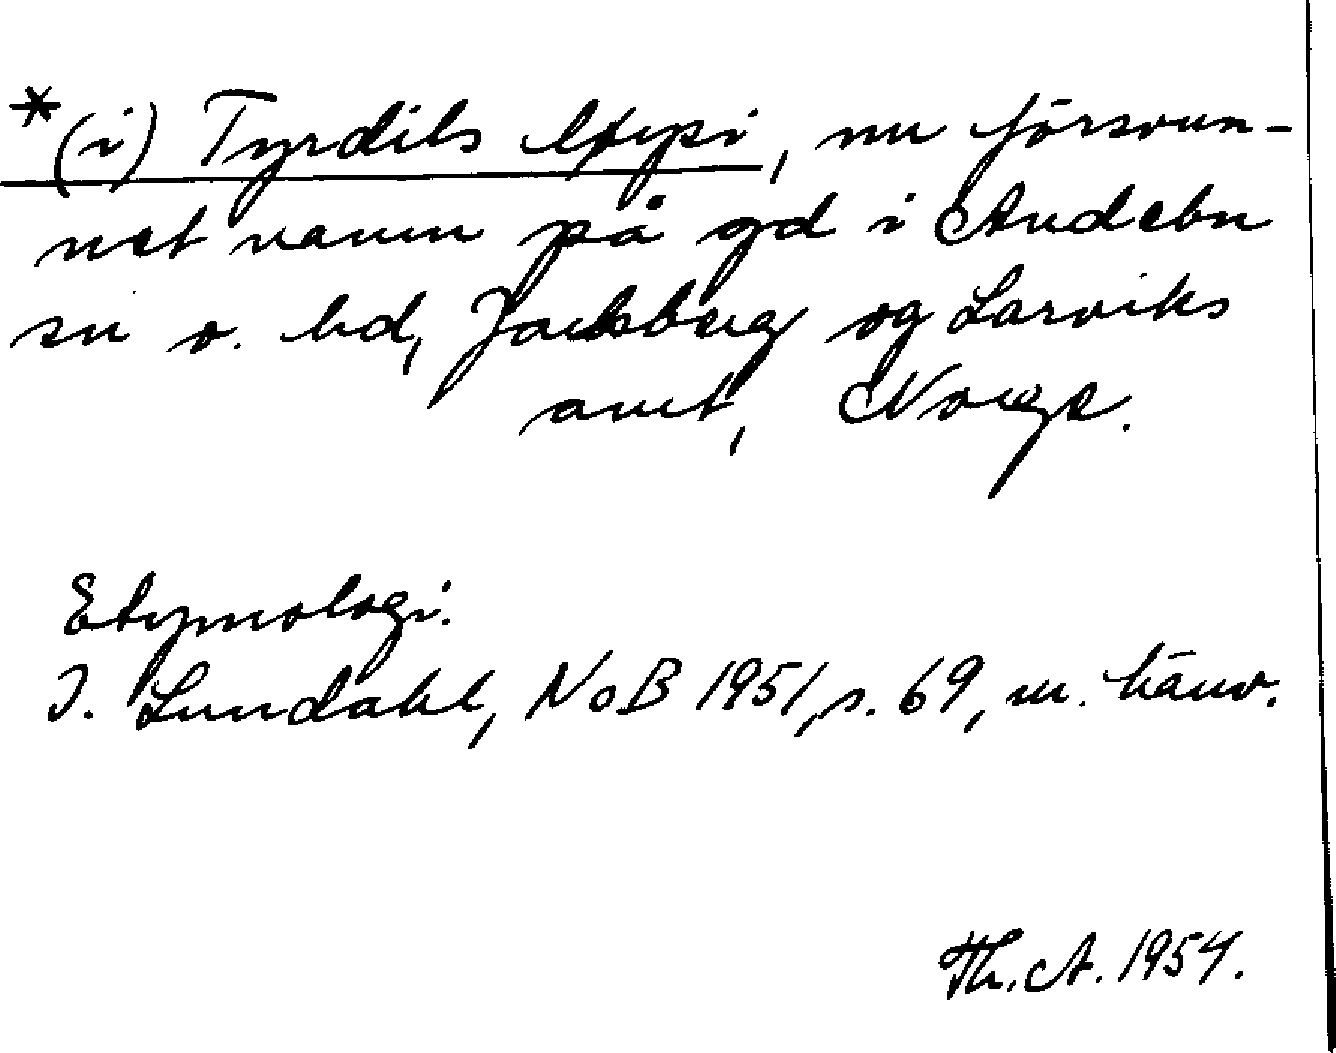 *(i) Tyrdils løypi, nu försvun-
net namn på gd i Andebu
sn o. hd, Jarlsberg og Larviks
amt, Norge.
Etymologi.
I. Lundahl, NoB 1951, s. 69, m. hänv.
Th. A. 1954.